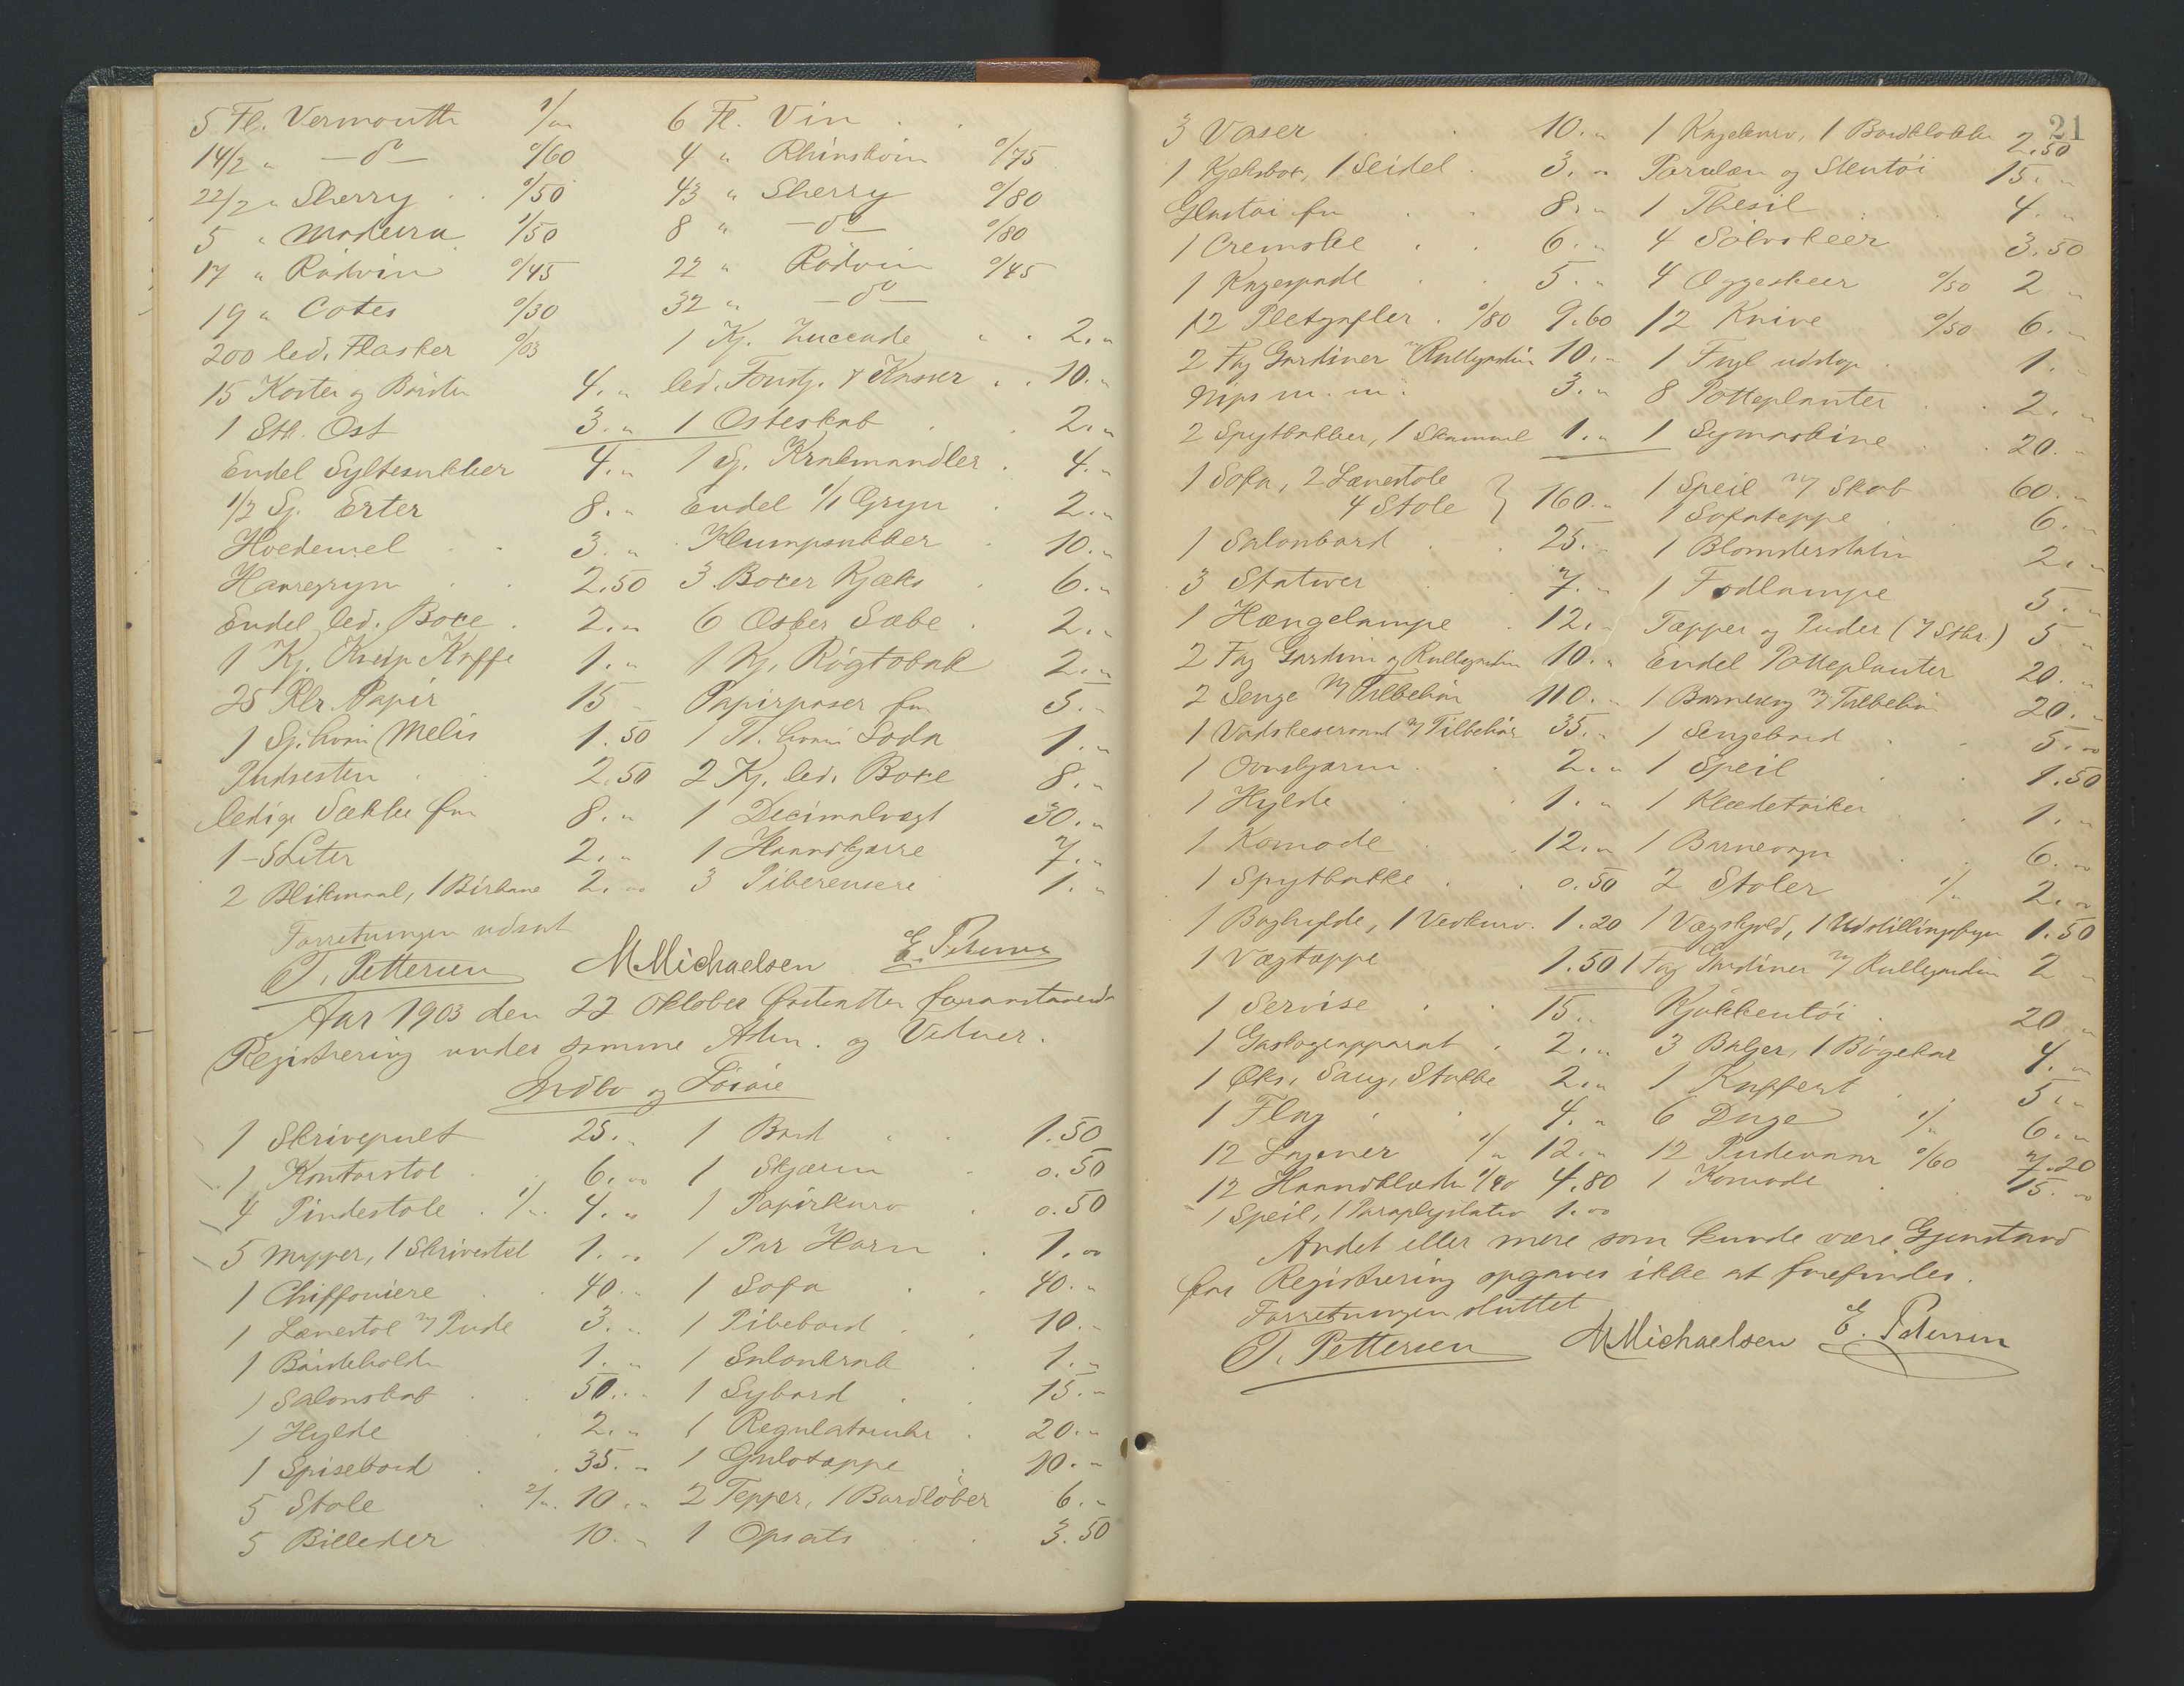 5 Fl. Vermouth 1/„ 6 Fl. Vin
14/2 „ — do — 0/60 4 „ Rhinskvin 0/75
22/2 „ Sherry 0/50 43 „ Sherry 0/80
5 „ Madeira 1/50 8 „ — do — 0/80
17 „ Rødvin 0/45 22 „ Rødvin 0/45
19 „ Cotes 0/30 32 „ — do —
200 led. Flasker 0/03 1 Kj. Succade 2.„
15 Koster og Børster 4.„ led. Foustj. & Kasser 10.„
1 Stk. Ost 3.„ 1 Osteskab 2.„
Endel Syltesukker 4.„ 1 Sj. Krakmandler 4.„
1/2 Sj. Erter 8.„ Endel 1/1 Gryn 2.„
Hvedemel 3.„ Klumpsukker 10.„
Havregryn 2.50 3 Boxer Kjæks 6.„
Endel led. Boxe 2.„ 6 Æsker Sæbe 2.„
1 Kj. Kneip Kaffe 1.„ 1 Kj. Røgtobak 2.„
25 Rlr. Papir 15 „ Papirposer for 5.„
1 Sj. hvori Melis 1.50 1 Td. hvori Soda 1.„
Pudsesten 2.50 2 Kj. led. Boxe 8.„
ledige Sække for 8.„ 1 Decimalvægt 30.„
1-5 Liter 2.„ 1 Haandkjærre 7.„
2 Blikmaal, 1 2.00 3 Piberensere 1.„
Forretningen udsat
T. Pettersen M Michaelsen E. Petersen
Aar 1903 den 22 Oktober fortsattes foranstaaende
Registrering under samme Adm. og Vidner.
Indbo og Løsøre
1 Skrivepult 25.„ 1 Bord 1.50
1 Kontorstol 6.00 1 Skjærm 0.50
4 Pindestole 1/„ 4.„ 1 Papirkurv 0.50
5 Mapper, 1 Skrivestel 1.„ 1 Par Horn 1.00
1 Chiffoniere 40.„ 1 Sofa 40.„
1 Lænestol m/ Pude 3.„ 1 Pibebord 10.„
1 Børsteholder 1.„ 1 Salonkrak 1.„
1 Salonskab 50.„ 1 Sybord 15.„
1 Hylde 2.„ 1 Regulatoruhr 20.„
1 Spisebord 35.„ 1 Gulvtæppe 10.„
5 Stole 2/„ 10.„ 2 Tepper, 1 Bordløber 6.„
5 Billeder 10.„ 1 Opsats 3.50
21
3 Vaser 10.„ 1 Kagekurv, 1 Bordklokke 2.50
1 Kjeksbox, 1 Seidel 3.„ Porcelæn og Stentøi 15.„
Glastøi for 8.„ 1 Thesil 4.„
1 Cremske 6.„ 4 Sølvskeer 3.50
1 Kagespade 5.„ 4 Æggeskeer 0/50 2 „
12 Pletgafler 0/80 9.60 12 Knive 0/50 6.„
2 Fag Gardiner m/ Rullgardin 10.„ 1 Fugl udstop. 1.„
Nips m. m. 3.„ 8 Potteplanter 2.„
2 Spytbakker, 1 Skammel 1.„ 1 Symaskine 20.„
1 Sofa, 2 Lænestole 1 Speil m/ Skab 60.„
4 Stole } 160.„ 1 Sofateppe 6.„
1 Salonbord 25.„ 1 Blomsterstativ 2.„
3 Statuer 7.„ 1 Fodlampe 5.„
1 Hængelampe 12.„ Tæpper og Puder (7 Stkr.) 5 „
2 Fag Gardin og Rullegardin 10.„ Endel Potteplanter 20.„
2 Senge m/ Tilbehør 110.„ 1 Barneseng m/ Tilbehør 20.„
1 Vadskeservant m/ Tilbehør 35.„ 1 Sengebord 5.00
1 Ovnskjærm 2.„ 1 Speil 1.50
1 Hylde 1.„ 1 Klædetørker 1.„
1 Komode 12.„ 1 Barnevogn 6.00
1 Spytbakke 0.50 2 Stoler 1/„ 2.„
1 Boghylde, 1 Vedkurv. 1.20 1 Vægskjold, 1 1.50
1 Vægtæppe 1.50 1 Fag Gardiner m/ Rullegardin 2 „
1 Servise 15.„ Kjøkkentøi 20 „
1 Gaskogeapparat 2.„ 3 Baljer, 1 Bøgekar 4.„
1 Øks, Saug, Stabbe 2.„ 1 Kuffert 5.„
1 Flag 4.„ 6 Duge 1/„ 6.„
12 Lagener 1/„ 12.„ 12 Pudevaar 0/60 7.20
12 Haandklæder 0/40 4.80 1 Komode 15.00
1 Speil, 1 Paraplystativ 1.00
Andet eller mere som kunde være Gjenstand
for Registrering opgaves ikke at forefindes.
Forretningen sluttet
T. Pettersen M Michaelsen E. Petersen